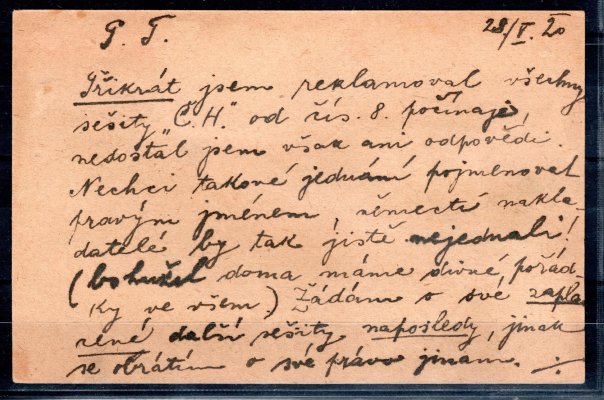 P. T. 28/V. 20
Třikrát jsem reklamoval všechny
sešity „Č.H." od čís. 8. počínaje,
nedostal jsem však ani odpovědi.
Nechci takové jednání pojmenovat
pravým jménem, němectí nakla-
datelé by tak jistě nejednali!
(bohužel doma máme divné pořád-
ky ve všem.) Žádám o své zapla-
cené další sešity naposledy, jinak
se obrátím o své právo jinam.